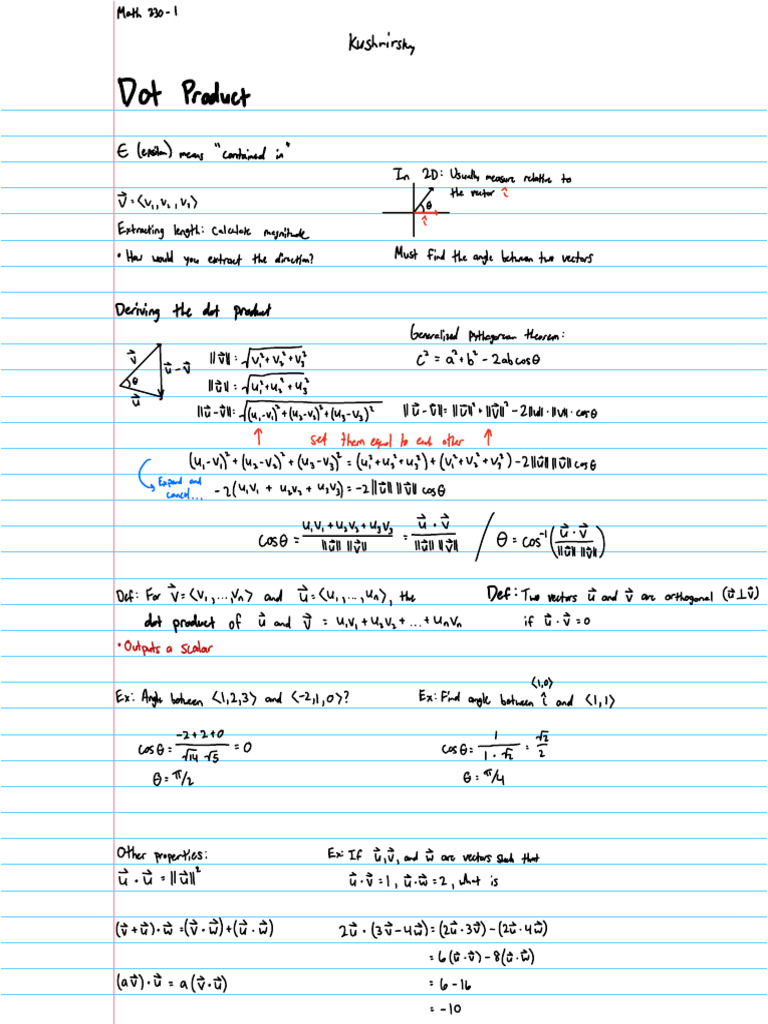 Math 230-1
Kushnirsky
Dot Product
∈ (epsilon) means "contained in"
In 2D: Usually measure relative to
the vector î
θ
î
v⃗ = <v₁, v₂, v₃>
Extracting length: Calculate magnitude
• How would you extract the direction?
Must find the angle between two vectors
Deriving the dot product
v⃗
u⃗ - v⃗
θ
u⃗
||v⃗|| = √(v₁² + v₂² + v₃²)
||u⃗|| = √(u₁² + u₂² + u₃²)
||u⃗ - v⃗|| = √((u₁-v₁)² + (u₂-v₂)² + (u₃-v₃)²)
Generalized Pythagorean theorem:
c² = a² + b² - 2ab cosθ
||u⃗ - v⃗|| = ||u⃗||² + ||v⃗||² - 2||u||·||v||·cosθ
↑ set them equal to each other ↑
(u₁-v₁)² + (u₂-v₂)² + (u₃-v₃)² = (u₁² + u₂² + u₃²) + (v₁² + v₂² + v₃²) - 2||u⃗|| ||v⃗|| cosθ
Expand and
cancel...
-2(u₁v₁ + u₂v₂ + u₃v₃) = -2||u⃗|| ||v⃗|| cosθ
cosθ = (u₁v₁ + u₂v₂ + u₃v₃)/(||u⃗|| ||v⃗||) = (u⃗ · v⃗)/(||u⃗|| ||v⃗||) / θ = cos⁻¹((u⃗ · v⃗)/(||u⃗|| ||v⃗||))
Def: For v⃗ = <v₁, ..., vₙ> and u⃗ = <u₁, ..., uₙ>, the
dot product of u⃗ and v⃗ = u₁v₁ + u₂v₂ + ... + uₙvₙ
• Outputs a scalar
Def: Two vectors u⃗ and v⃗ are orthogonal (u⃗ ⊥ v⃗)
if u⃗ · v⃗ = 0
Ex: Angle between <1,2,3> and <-2,1,0>?
cosθ = (-2+2+0)/(√14 √5) = 0
θ = π/2
<1,0>
Ex: Find angle between î and <1,1>
cosθ = 1/(1·√2) = √2/2
θ = π/4
Other properties:
u⃗ · u⃗ = ||u⃗||²
(v⃗ + u⃗) · w⃗ = (v⃗ · w⃗) + (u⃗ · w⃗)
(av⃗) · u⃗ = a(v⃗ · u⃗)
Ex: If u⃗, v⃗, and w⃗ are vectors such that
u⃗ · v⃗ = 1, u⃗ · w⃗ = 2, what is
2u⃗ · (3v⃗ - 4w⃗) = (2u⃗ · 3v⃗) - (2u⃗ · 4w⃗)
= 6(u⃗ · v⃗) - 8(u⃗ · w⃗)
= 6 - 16
= -10